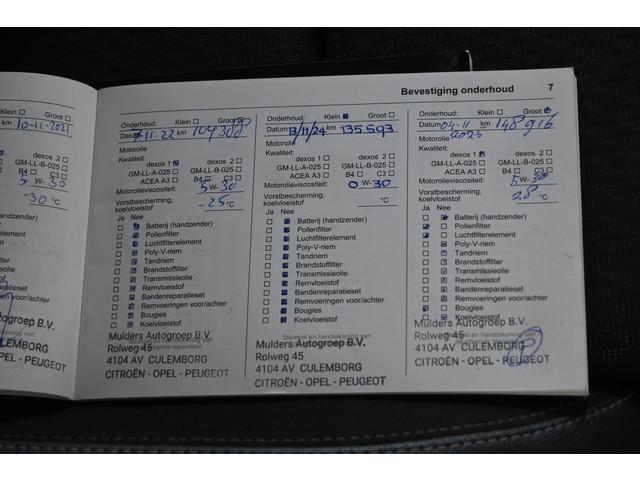 Bevestiging onderhoud 7
Klein Groot
km 10-11-2021
dexos 2
GM-LL-B-025
C3
5 W-30
-30 °C
(handzender)
filterelement
atieset
en voor/achter
Onderhoud: Klein Groot
Datum 7-11-22 km 109388
Motorolie
Kwaliteit:
dexos 1 dexos 2
GM-LL-A-025 GM-LL-B-025
ACEA A3 B4 C3
Motorolieviscositeit: 5 W-30
Vorstbescherming,
koelvloeistof -25 °C
Ja Nee
Batterij (handzender)
Pollenfilter
Luchtfilterelement
Poly-V-riem
Tandriem
Brandstoffilter
Transmissieolie
Remvloeistof
Bandenreparatieset
Remvoeringen voor/achter
Bougies
Koelvloeistof
Mulders Autogroep B.V.
Rolweg 45
4104 AV CULEMBORG
CITROËN - OPEL - PEUGEOT
Onderhoud: Klein Groot
Datum 13/11/24 km 135.593
Motorolie
Kwaliteit:
dexos 1 dexos 2
GM-LL-A-025 GM-LL-B-025
ACEA A3 B4 C3
Motorolieviscositeit: 0 W-30
Vorstbescherming,
koelvloeistof °C
Ja Nee
Batterij (handzender)
Pollenfilter
Luchtfilterelement
Poly-V-riem
Tandriem
Brandstoffilter
Transmissieolie
Remvloeistof
Bandenreparatieset
Remvoeringen voor/achter
Bougies
Koelvloeistof
Stempel en handtekening van
Mulders Autogroep B.V.
Rolweg 45
4104 AV CULEMBORG
CITROËN - OPEL - PEUGEOT
Onderhoud: Klein Groot
Datum 04-11 km 148916
Motorolie 2025
Kwaliteit:
dexos 1 dexos 2
GM-LL-A-025 GM-LL-B-025
ACEA A3 B4 C3
Motorolieviscositeit: 5 W-30
Vorstbescherming,
koelvloeistof 28 °C
Ja Nee
Batterij (handzender)
Pollenfilter
Luchtfilterelement
Poly-V-riem
Tandriem
Brandstoffilter
Transmissieolie
Remvloeistof
Bandenreparatieset
Remvoeringen voor/achter
Bougies
Koelvloeistof
Mulders Autogroep B.V.
Rolweg 45
4104 AV CULEMBORG
CITROËN - OPEL - PEUGEOT